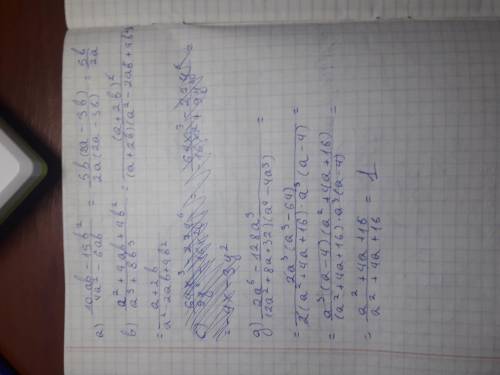 а) (10ab - 15b²)/(4a² - 6ab) = (5b(2a - 3b))/(2a(2a - 3b)) = 5b/2a
в) (a² + 4ab + 4b²)/(a³ + 8b³) = (a + 2b)²/((a + 2b)(a² - 2ab + 4b²)) =
= (a + 2b)/(a² - 2ab + 4b²)
= 4x - 3y²
g) (2a⁶ - 128a³)/((2a² + 8a + 32)(a⁴ - 4a³)) =
= (2a³(a³ - 64))/(2(a² + 4a + 16)·a³(a - 4)) =
= (a³(a - 4)(a² + 4a + 16))/((a² + 4a + 16)·a³(a - 4)) =
= (a² + 4a + 16)/(a² + 4a + 16) = 1